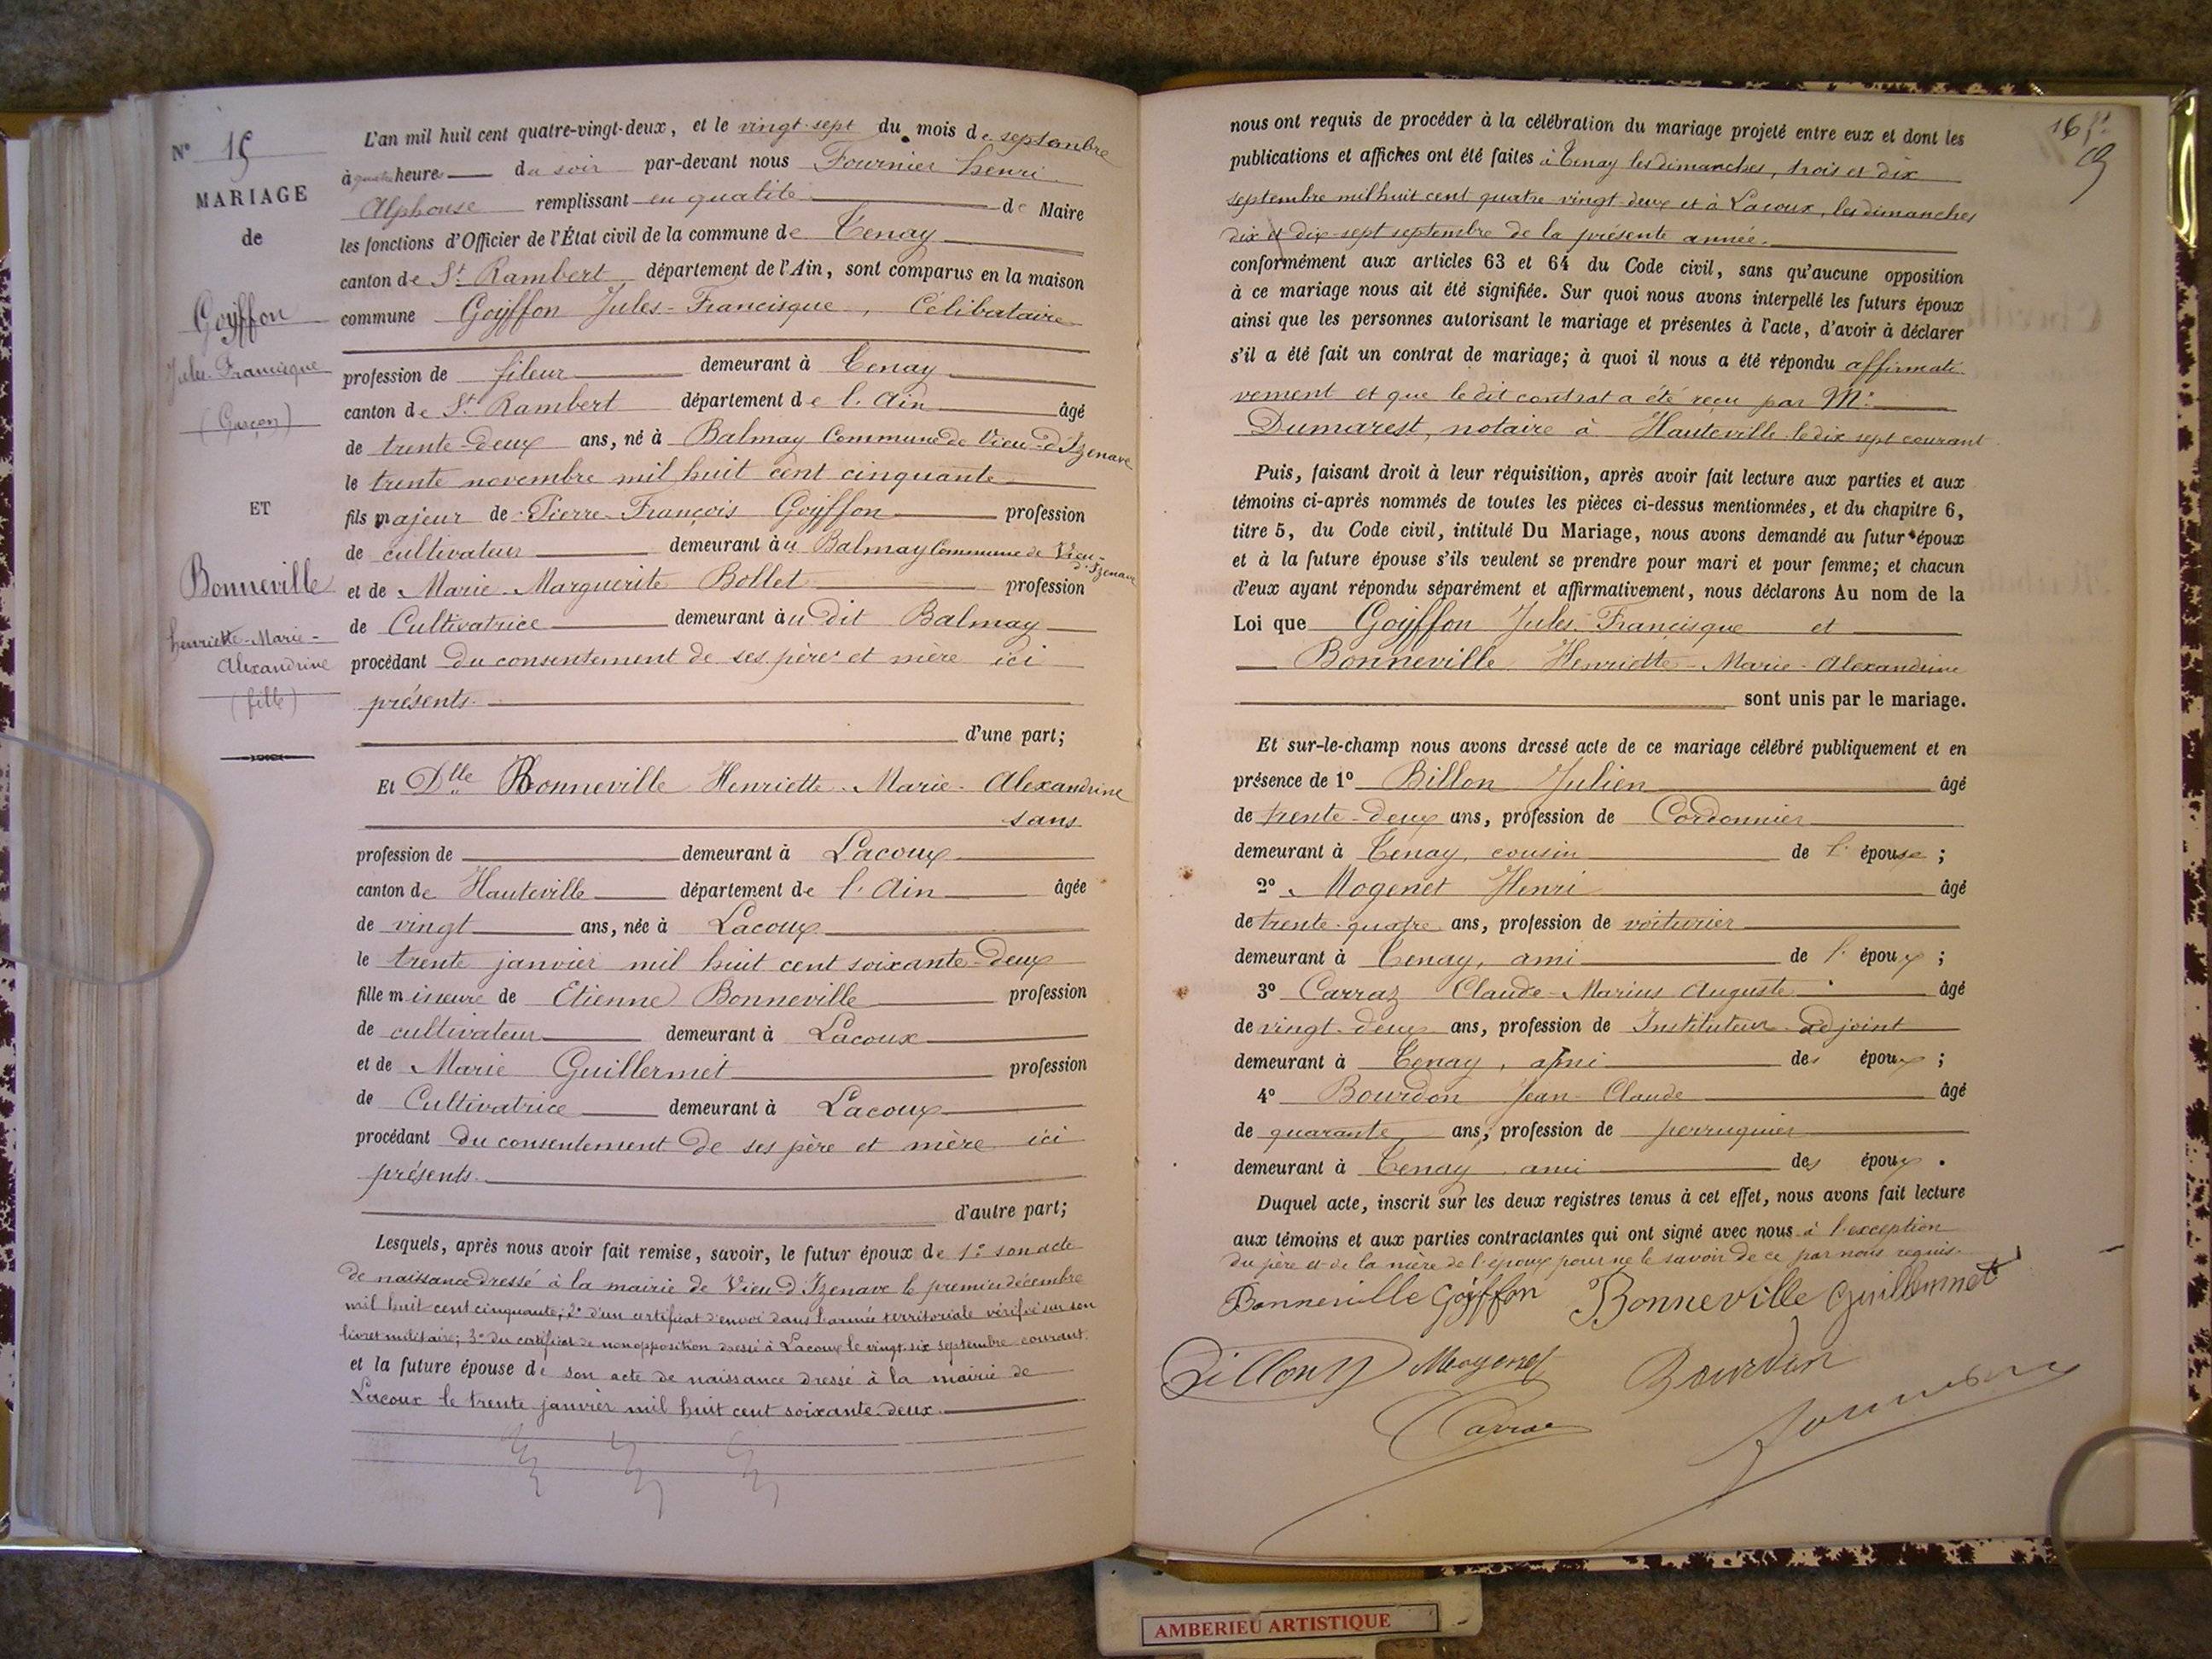 N° 15
MARIAGE
de
Goyffon
Jules-Francisque
(Garçon)
ET
Bonneville
henriette-Marie-
Alexandrine
(fille)
L'an mil huit cent quatre-vingt-deux, et le vingt-sept du mois de septembre
à quatre heures du soir par-devant nous Fournier henri
Alphonse remplissant en qualité de Maire
les fonctions d'Officier de l'État civil de la commune de Tenay
canton de St Rambert département de l'Ain, sont comparus en la maison
commune Goyffon Jules-Francisque, Célibataire
profession de fileur demeurant à Tenay
canton de St Rambert département de l'Ain âgé
de trente-deux ans, né à Balmay Commune de Vieu-d'Izenave
le trente novembre mil huit cent cinquante
fils majeur de Pierre-François Goyffon profession
de cultivateur demeurant àu Balmay Commune de Vieu-
d'Izenave
et de Marie-Marguerite Bollet profession
de Cultivatrice demeurant àu dit Balmay
procédant du consentement de ses père et mère ici
présents.
d'une part;
Et Dlle Bonneville Henriette-Marie-Alexandrine
sans
profession de demeurant à Lacoux
canton de Hauteville département de l'Ain âgée
de vingt ans, née à Lacoux
le trente janvier mil huit cent soixante-deux
fille mineure de Etienne Bonneville profession
de cultivateur demeurant à Lacoux
et de Marie Guillermet profession
de Cultivatrice demeurant à Lacoux
procédant du consentement de ses père et mère ici
présents.
d'autre part;
Lesquels, après nous avoir fait remise, savoir, le futur époux de 1° son acte
de naissance dressé à la mairie de Vieu d'Izenave le premier décembre
mil huit cent cinquante; 2° d'un certificat d'envoi dans l'armée territoriale vérifié sur son
livret militaire; 3° du certificat de non opposition dressé à Lacoux le vingt-six septembre courant.
et la future épouse de son acte de naissance dressé à la mairie de
Lacoux le trente janvier mil huit cent soixante-deux.
165
nous ont requis de procéder à la célébration du mariage projeté entre eux et dont les
publications et affiches ont été faites à Tenay les dimanches, trois et dix
septembre mil huit cent quatre vingt-deux et à Lacoux, les dimanches
dix et dix-sept septembre de la présente année.
conformément aux articles 63 et 64 du Code civil, sans qu'aucune opposition
à ce mariage nous ait été signifiée. Sur quoi nous avons interpellé les futurs époux
ainsi que les personnes autorisant le mariage et présentes à l'acte, d'avoir à déclarer
s'il a été fait un contrat de mariage; à quoi il nous a été répondu affirmati-
vement et que le dit contrat a été reçu par Me
Dumarest, notaire à Hauteville le dix sept courant
Puis, faisant droit à leur réquisition, après avoir fait lecture aux parties et aux
témoins ci-après nommés de toutes les pièces ci-dessus mentionnées, et du chapitre 6,
titre 5, du Code civil, intitulé Du Mariage, nous avons demandé au futur époux
et à la future épouse s'ils veulent se prendre pour mari et pour femme; et chacun
d'eux ayant répondu séparément et affirmativement, nous déclarons Au nom de la
Loi que Goyffon Jules-Francisque et
Bonneville Henriette-Marie-Alexandrine
sont unis par le mariage.
Et sur-le-champ nous avons dressé acte de ce mariage célébré publiquement et en
présence de 1° Billon Julien âgé
de trente-deux ans, profession de Cordonnier
demeurant à Tenay, cousin de l'épouse;
2° Mogenet Henri âgé
de trente-quatre ans, profession de voiturier
demeurant à Tenay, ami de l'époux;
3° Carraz Claude-Marius Auguste âgé
de vingt-deux ans, profession de Instituteur-adjoint
demeurant à Tenay, ami des époux;
4° Bourdon Jean-Claude âgé
de quarante ans, profession de perruquier
demeurant à Tenay, ami des époux.
Duquel acte, inscrit sur les deux registres tenus à cet effet, nous avons fait lecture
aux témoins et aux parties contractantes qui ont signé avec nous à l'exception
du père et de la mère de l'époux pour ne le savoir de ce par nous requis.
Bonneville Goyffon Bonneville Guillermet
Billon Mogenet Bourdon
Carraz Fournier
AMBERIEU ARTISTIQUE